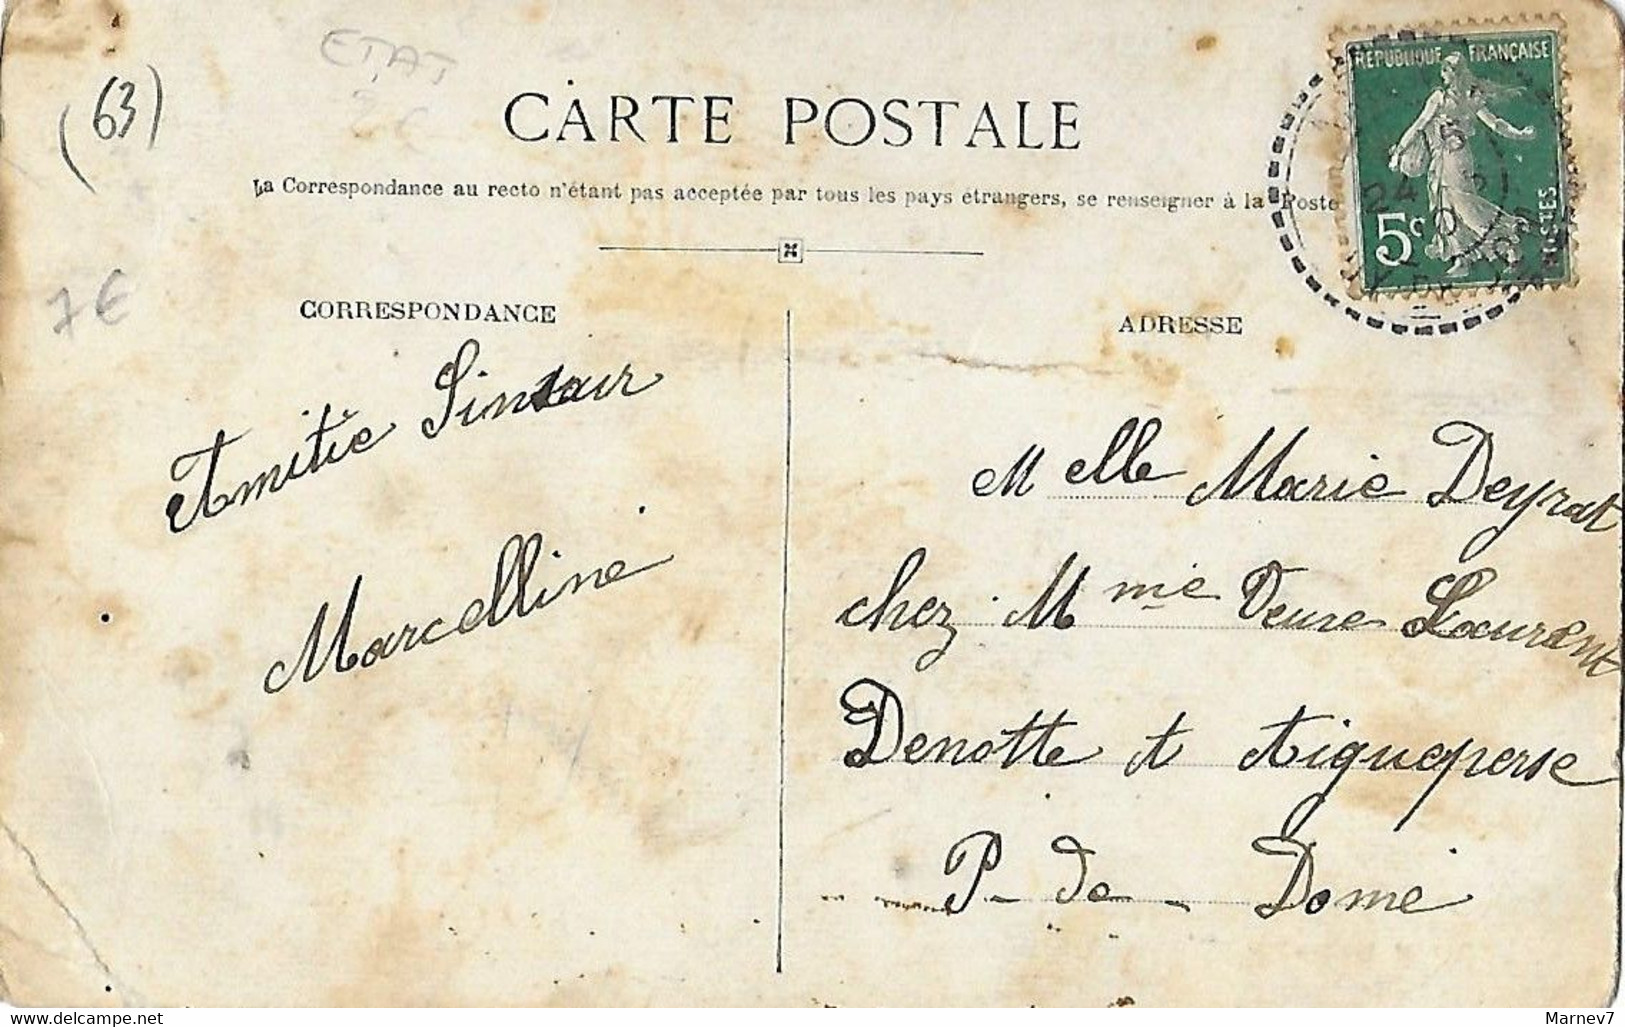 ETAT
(63)
CARTE POSTALE
La Correspondance au recto n'étant pas acceptée par tous les pays étrangers, se renseigner à la Poste
RÉPUBLIQUE FRANÇAISE
5c
POSTES
15
24
7€
CORRESPONDANCE
Amitie Sincair
Marcelline
ADRESSE
Melle Marie Deyrat
chez Mme Veuve Laurent
Denotte A Aigueperse
P-de-Dome
delcampe.net
Marnev7